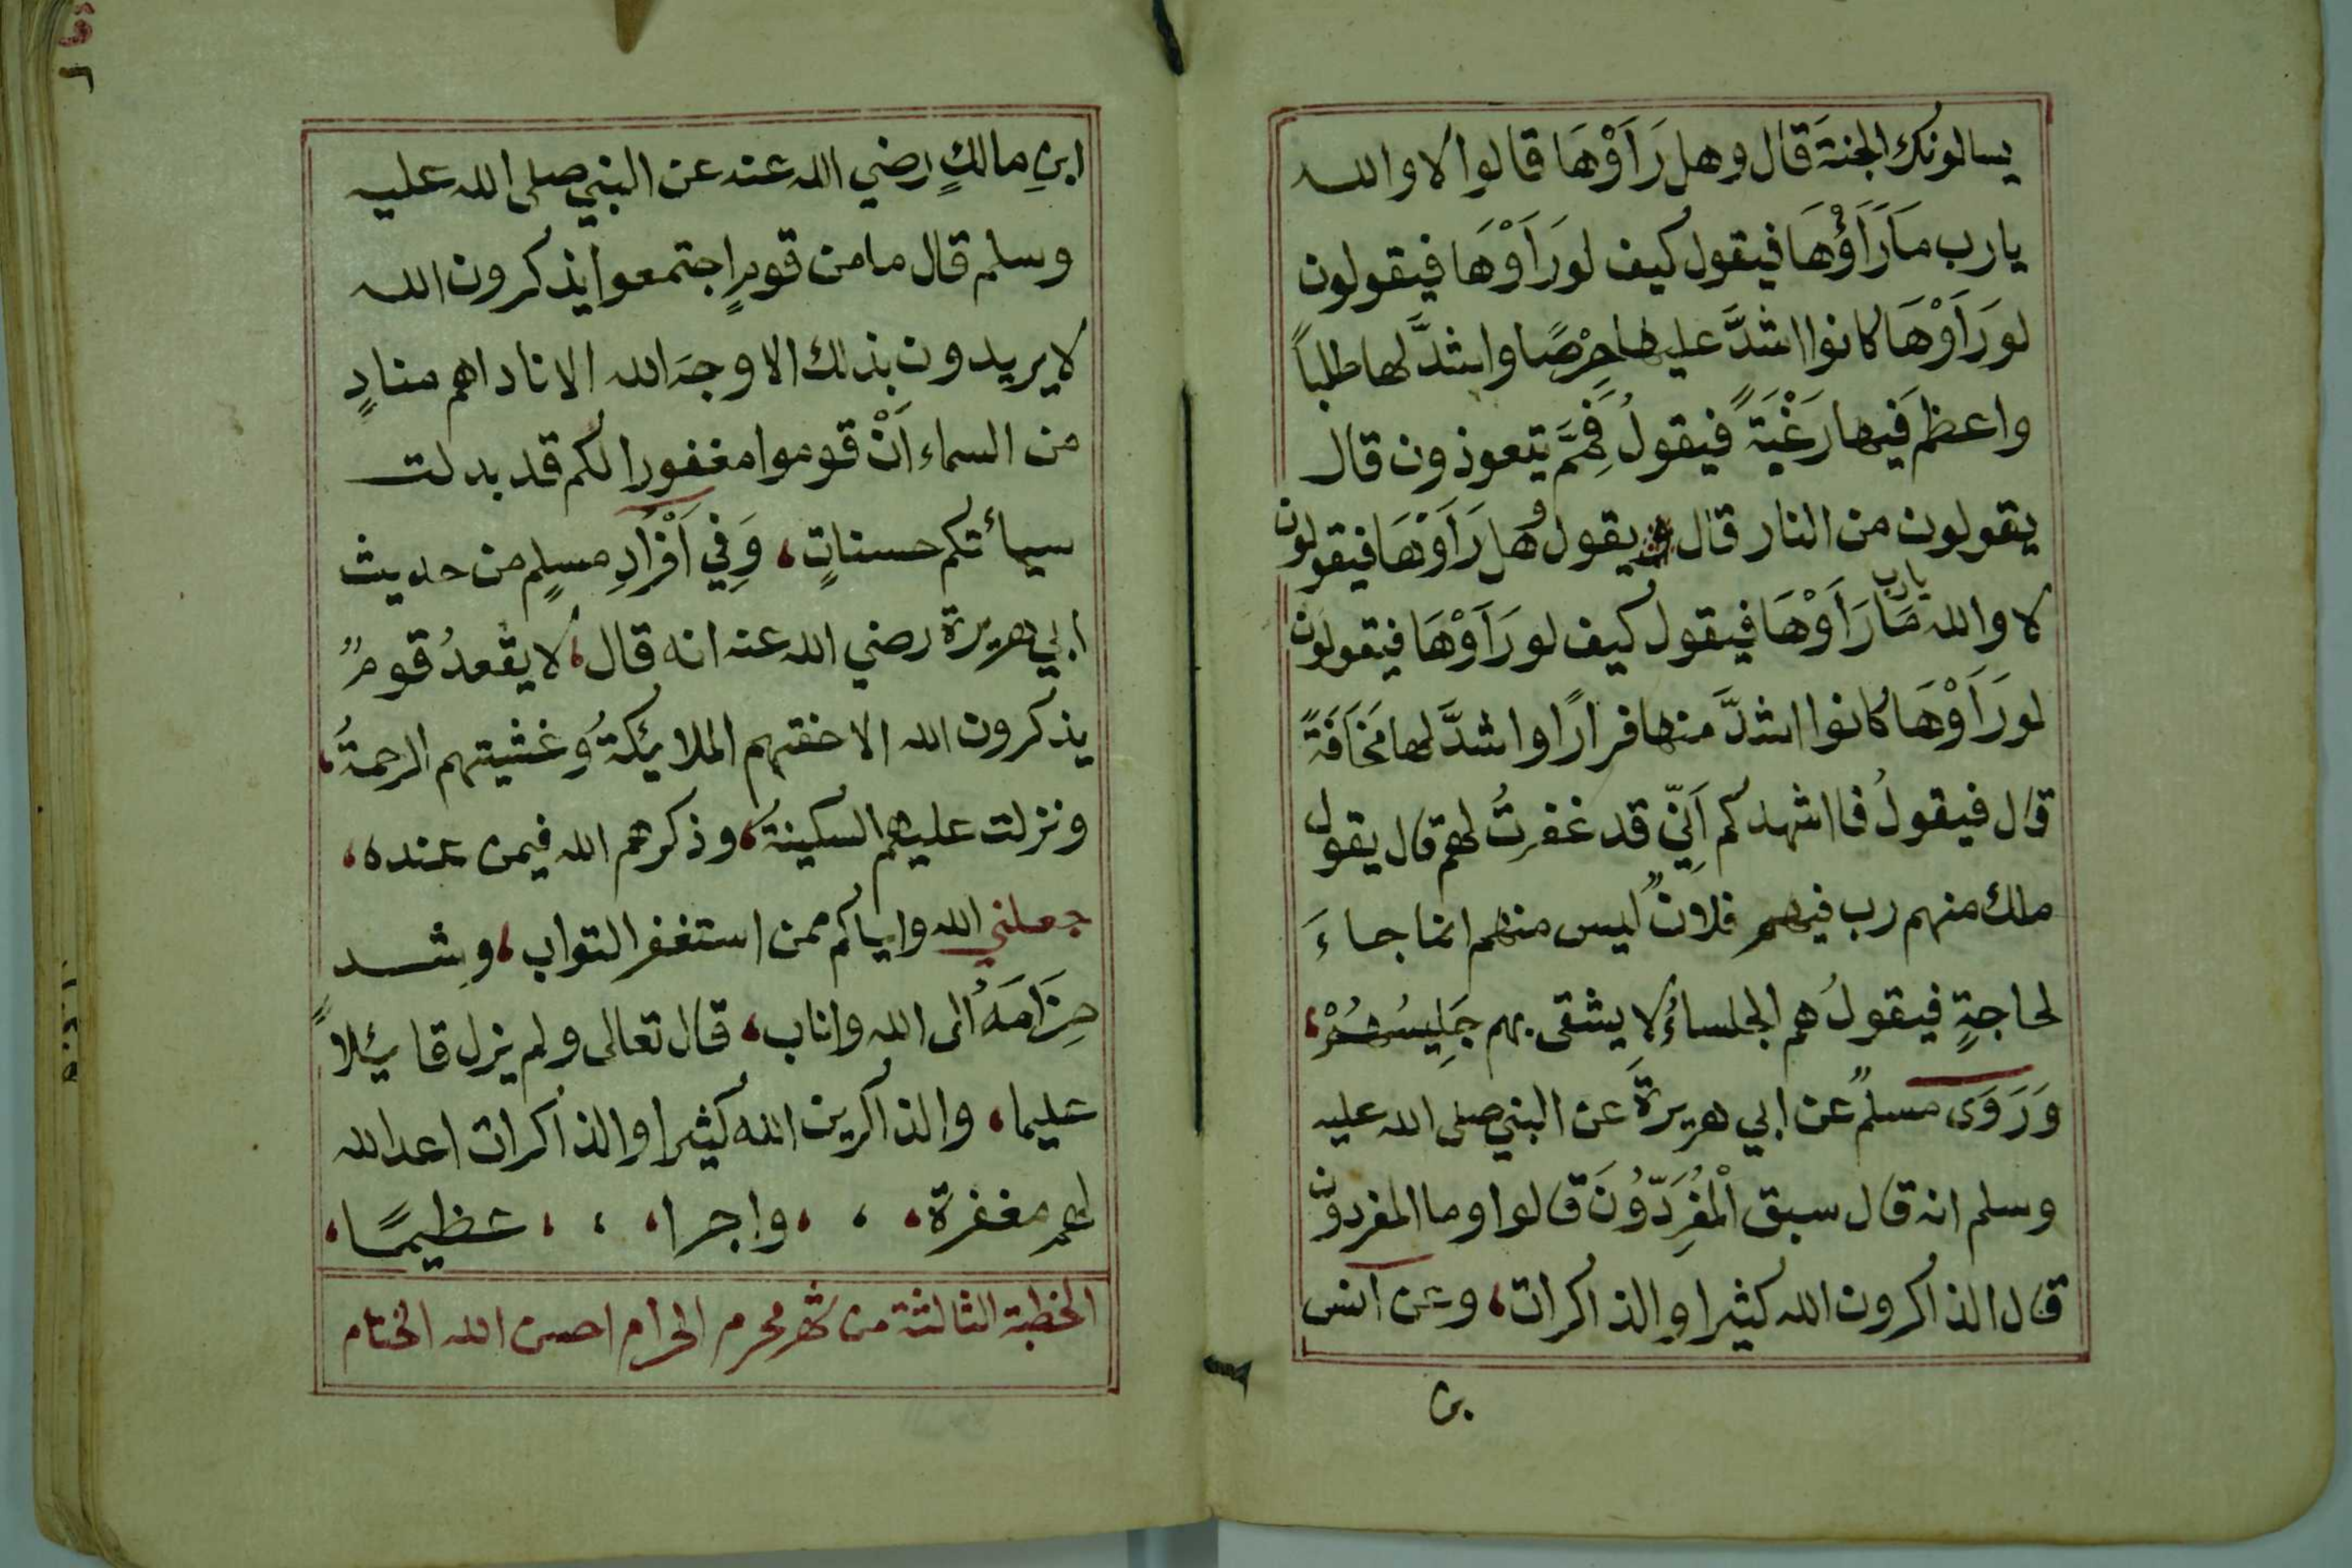 يسالونك الجنةَ قال وهل رَأَوْهَا قالوا لا والله
يارب مَارَأَوْهَا فيقول كيف لورَأَوْهَا فيقولون
لورَأَوْهَا كانوا اشدَّ عليها حِرْصًا واشدَّ لها طلباً
واعظم فيها رَغْبَةً فيقولُ فَمِمَّ يتعوذون قال
يقولون من النار قال يقول وهل رَأَوْهَا فيقولون
لا والله يارب مَا رَأَوْهَا فيقول كيف لورَأَوْهَا فيقولون
لورَأَوْهَا كانوا اشدَّ منها فرارًا واشدَّ لها مَخَافَةً
قال فيقولُ فااشهدكم اَنِّي قد غفرتُ لهم قال يقول
ملك منهم رب فيهم فلانٌ ليس منهم انما جاءَ
لحاجةٍ فيقولُ هم الجلساءُ لا يشقى بهم جَلِيسُهُمْ،
وَرَوَى مسلمٌ عن ابي هريرةَ عن النبي صلى الله عليه
وسلم انه قال سبق الْمُفَرِّدُونَ قالوا وما المفردون
قال الذاكرون الله كثيرا والذاكرات، وعن انس
بن
ابنِ مالكٍ رضي الله عنه عن النبي صلى الله عليه
وسلم قال ما من قومٍ اجتمعوا يذكرون الله
لا يريدون بذلك الا وجهَ الله الا ناداهم منادٍ
من السماء اَنْ قوموا مغفورا لكم قد بدلت
سيأتكم حسناتٍ، وَفِي اَفْرَادِ مسلمٍ من حديث
ابي هريرة رضي الله عنه انه قال، لا يقْعدُ قومٌ
يذكرون الله الا حفتهم الملائكةُ وغشيتهم الرحمةُ،
ونزلت عليهم السكينةُ، وذكرهم الله فيمن عنده،
جعلني الله واياكم ممن استغفر التواب، وشد
حِزَامَهُ الى الله واناب، قال تعالى ولم يزل قائلاً
عليما، والذاكرين الله كثيرا والذاكرات اعد الله
لهم مغفرة، ، ، واجرا، ، ، عظيمًا،
الخطبة الثالثة من شهر محرم الحرام احسن الله الختام